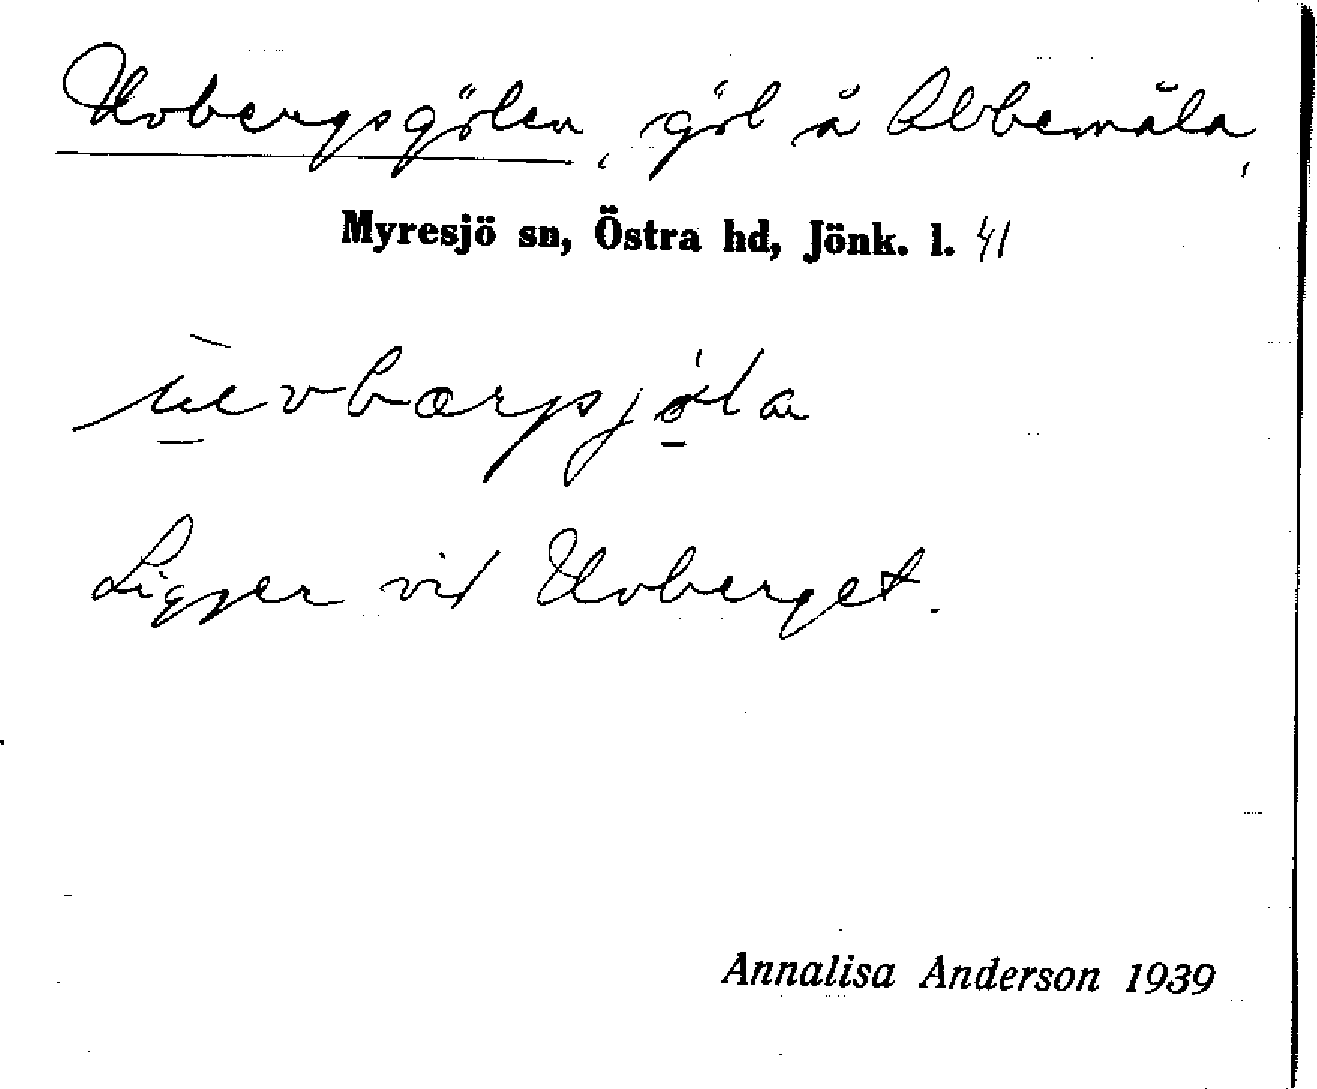 Uvbergsgölen, göl å Abbemåla,
Myresjö sn, Östra hd, Jönk. l. 41
Ligger vid Uvberget.
Annalisa Anderson 1939